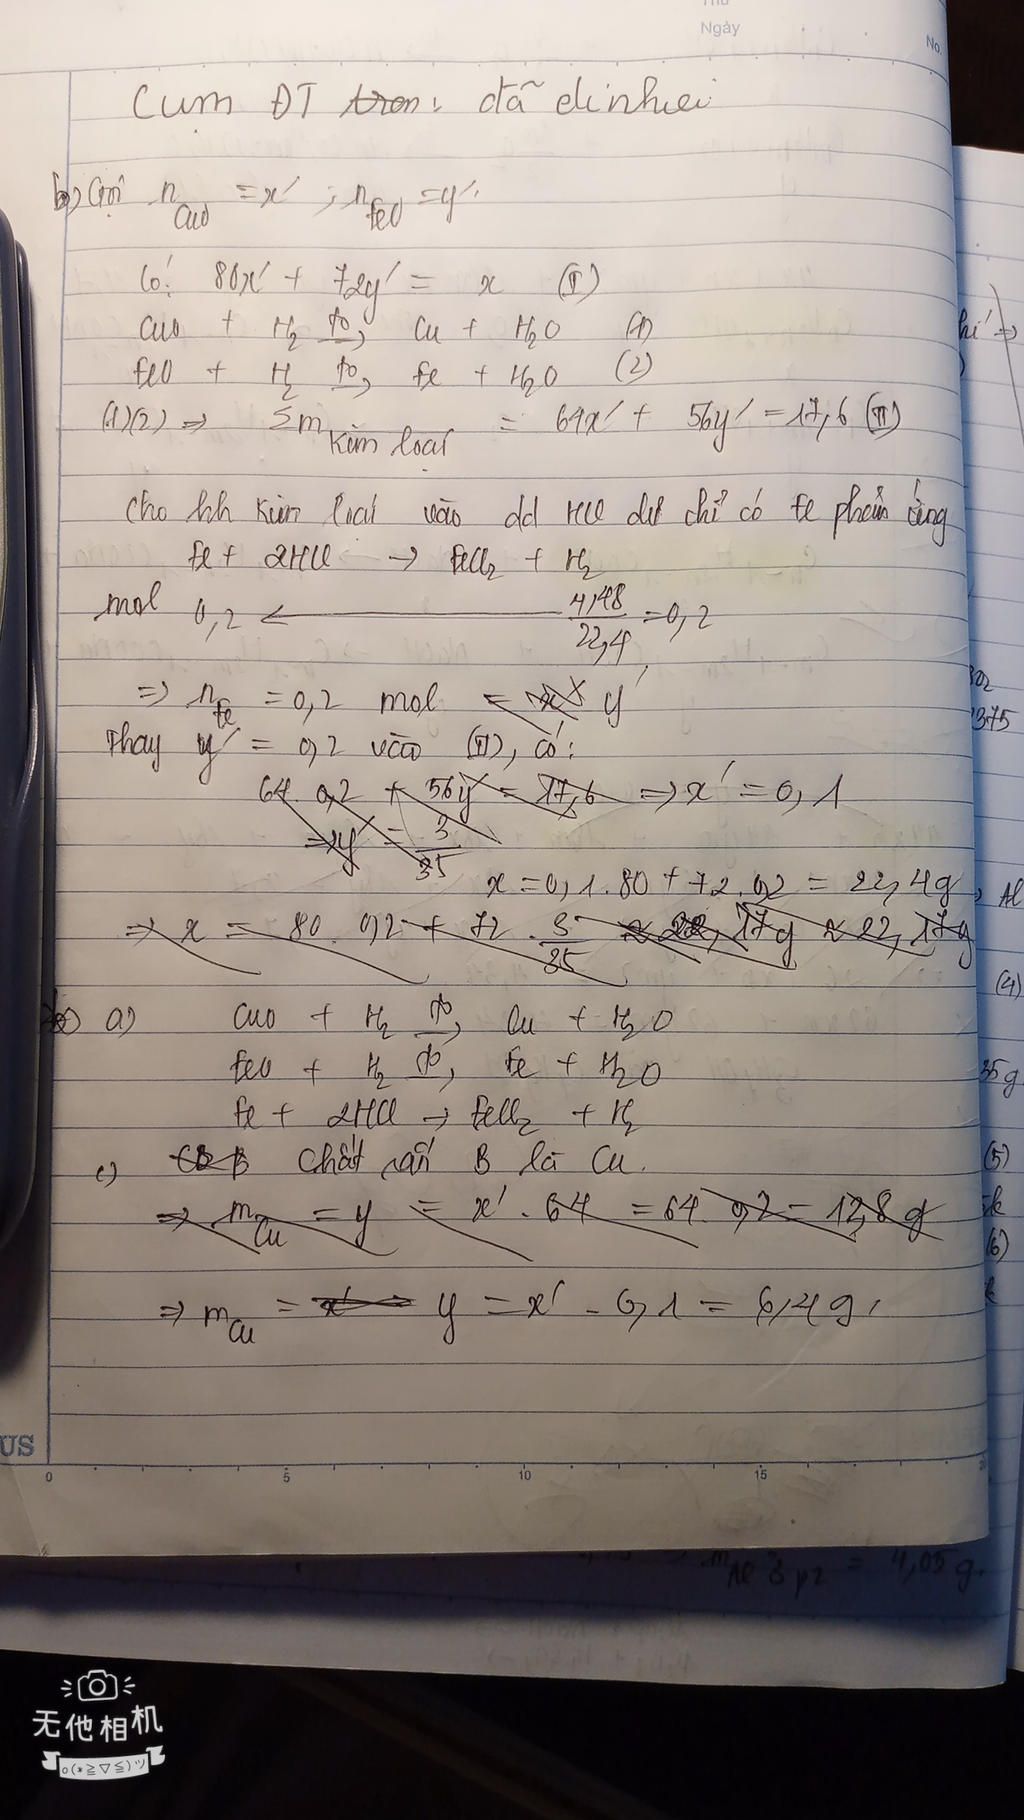 Thứ
Ngày
No.
Cụm ĐT tron: đã dinhei
b) Gọi n CuO = x' ; n FeO = y'
Có: 80x' + 72y' = x (I)
CuO + H2 to→ Cu + H2O (1)
FeO + H2 to→ Fe + H2O (2)
(1)(2) => Σm kim loại = 64x' + 56y' = 17,6 (II)
Cho hh kim loại vào dd HCl dư chỉ có Fe phản ứng
Fe + 2HCl → FeCl2 + H2
mol 0,2 ← 4,48/22,4 = 0,2
=> n Fe = 0,2 mol = x' y'
Thay y' = 0,2 vào (II), có:
64. 0,2 + 56y' = 17,6 => x' = 0,1
=> y' = 3/35
x = 0,1.80 + 72.0,2 = 22,4g
=> x = 80. 0,2 + 72. 3/35 ≈ 22,17g ≈ 22,17g
a) CuO + H2 to→ Cu + H2O
FeO + H2 to→ Fe + H2O
Fe + 2HCl → FeCl2 + H2
c) B Chất rắn B là Cu.
=> m Cu = y = x'. 64 = 64. 0,2 = 12,8 g
=> m Cu = x' y = x' - 6,1 = 6,4 g
US
0 5 10 15
hí =>
302
375
, Al
(4)
35g
(5)
(6)
m Al ở p2 = 4,05g.
无他相机
o(*≧▽≦)ツ